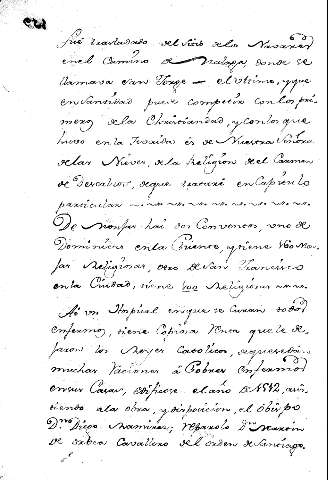 fue trasladado del sitio de la Navared
en el Camino de Malaga, donde se
llamava San Jorge — el ultimo, y que
en Santidad puede competir con los pri
meros de la Christiandad, y con los que
huvo en la Tevaida es de Nuestra Señora
de las Nieves, de la Religion del Carmen
de Descalsos, de que tratare en Capitulo
particular
De Monjas hai dos Conventos, uno de
Dominicas en la Puente, y tiene
Religiosas, otro de San Francisco
en la Ciudad, tiene 100 Religiosas
Ai un Hospital en que se Curan todos
enfermos, tiene Copiosa Renta que le de
jaron los Reyes Catolicos,
muchas Raciones à Pobres enfermos
en sus Casas, edificose el año de 1542, asis
tiendo a la obra, y disposicion, el Obispo
Dn. Diego Ramirez; Dn. Martin
de Cavallero del orden de Santiago